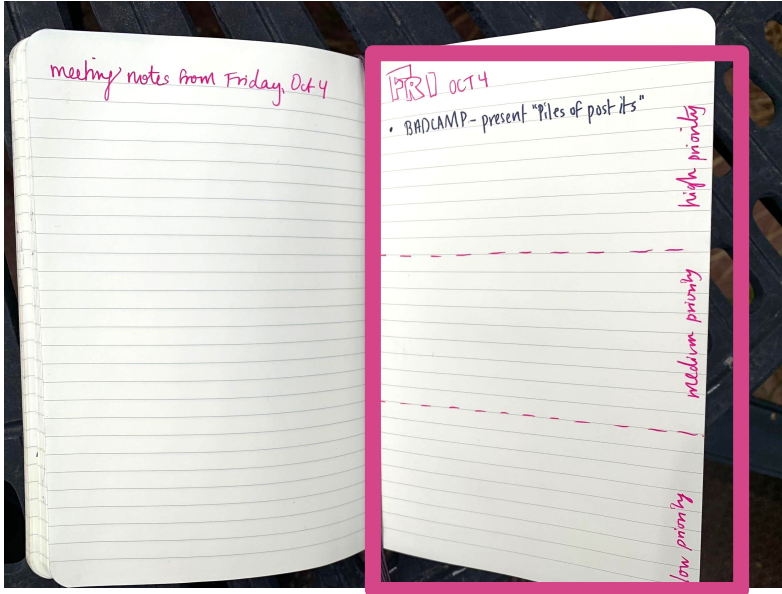 meeting notes from Friday, Oct 4
FRI OCT 4
• BADCAMP - present "Piles of post its"
high priority
medium priority
low priority